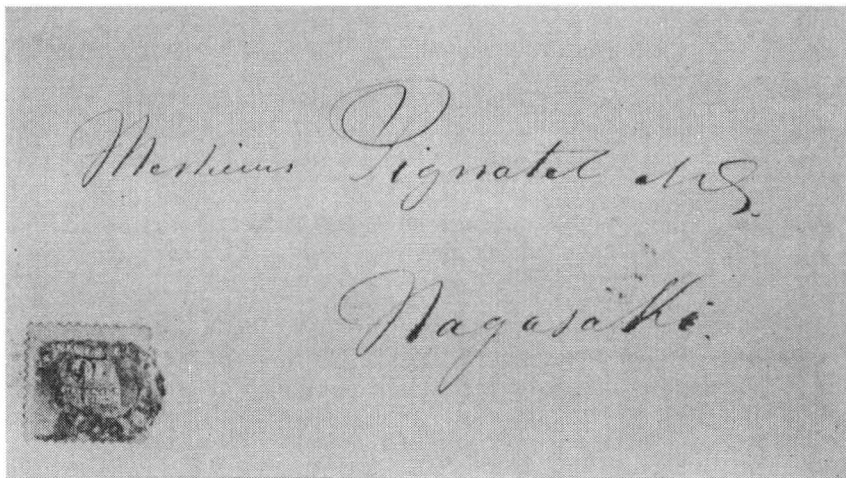 Messieurs Pignatel & Co.
Nagasaki.